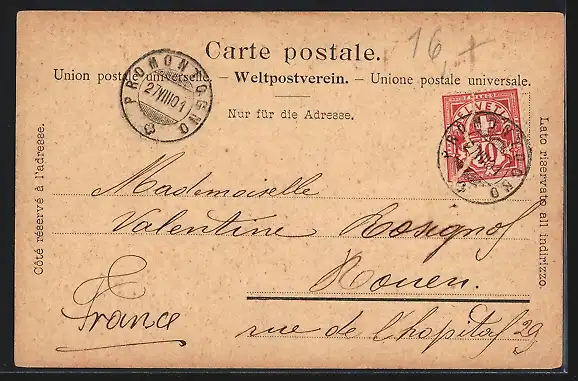 16,+
Carte postale.
Union postale universelle. - Weltpostverein. - Unione postale universale.
Nur für die Adresse.
PROMONTOGNO
27 VIII 01
HELVETIA
10
PROMONTOGNO
Côté réservé à l'adresse.
Lato riservato all indirizzo.
Mademoiselle
Valentine Rosignol
Rouen.
France
rue de l'hopital 29